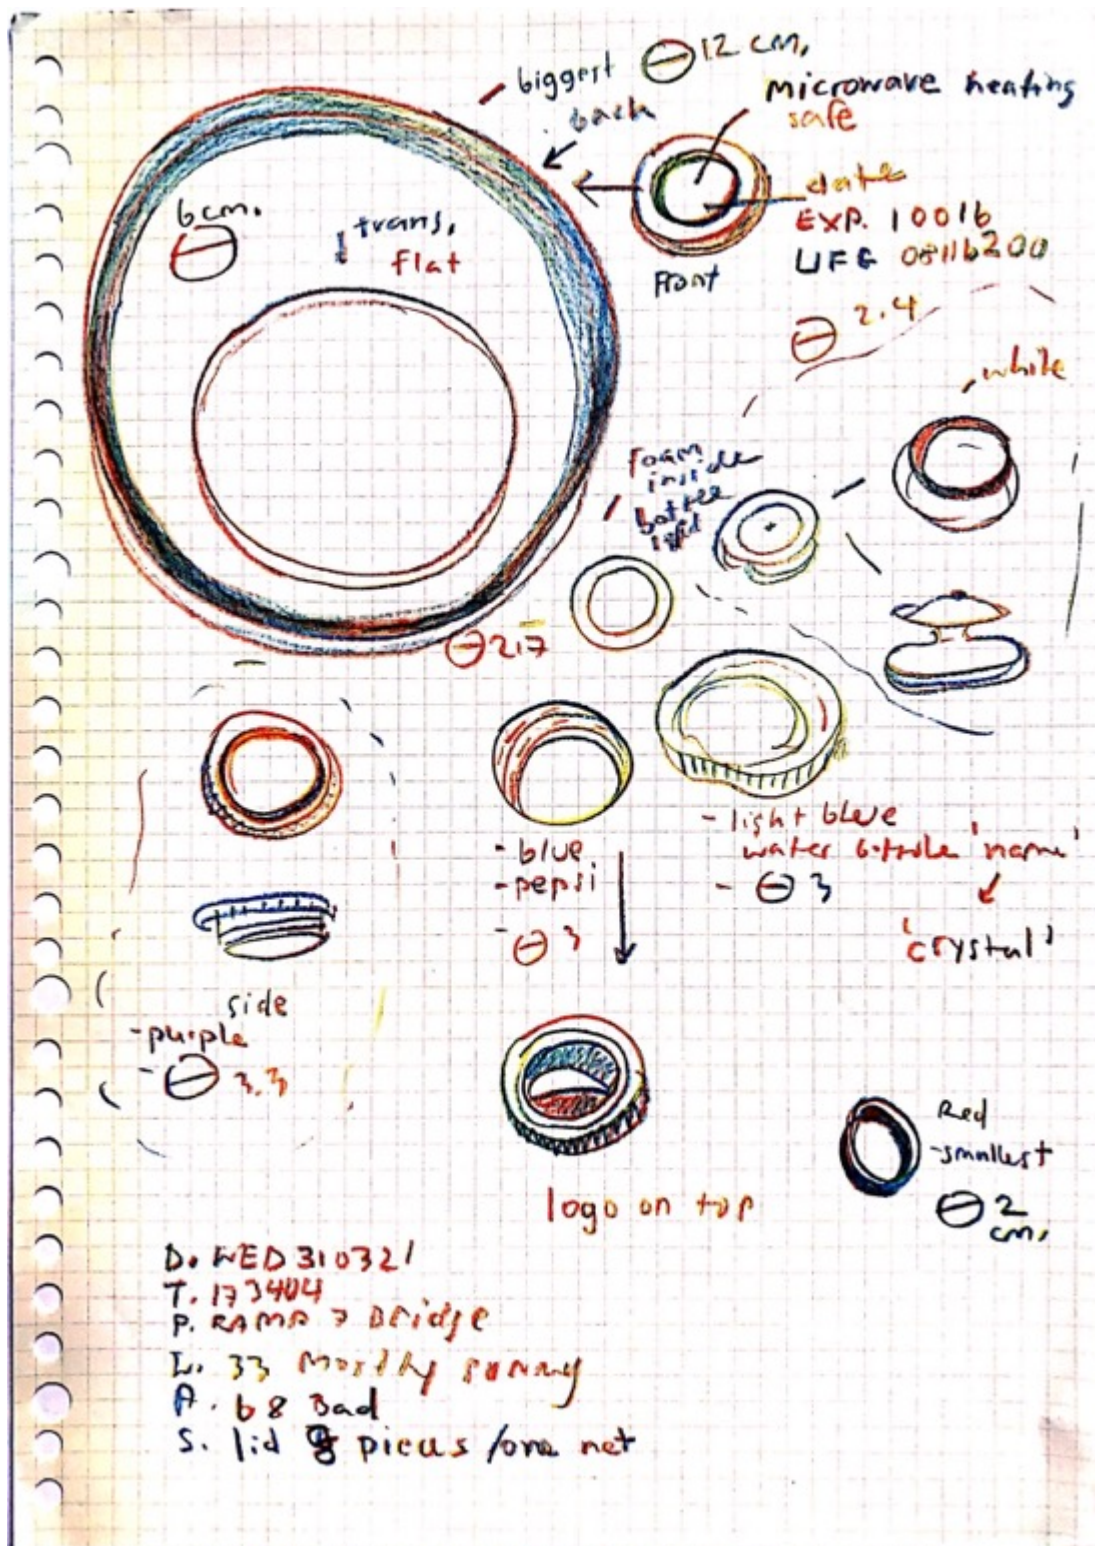 biggest ⊖ 12 cm.
back
microwave heating
safe
date
EXP. 10016
UFG 08116200
Front
6 cm.
trans.
flat
⊖ 2.4
white
foam
inside
⊖ 2.7
- blue
- pepsi
- ⊖ 3
- light blue
water bottole 'name'
- ⊖ 3
'crystal'
side
- purple
- ⊖ 3.3
logo on top
Red
- smallest
⊖ 2
cm.
D. WED 310321
T. 173404
P. RAMA 7 Bridge
33 Mostly sunny
A. 68 Bad
S. lid pieces / one net